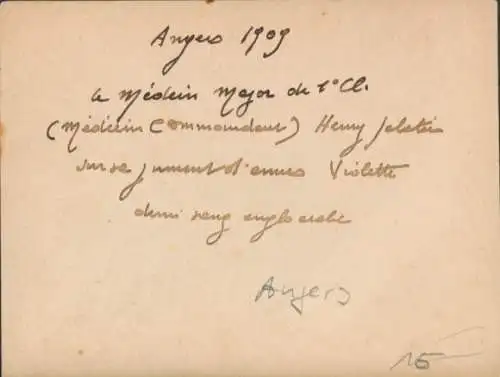 Angers 1909
le Médecin Major de 1° Cl.
(Médecin Commandant) Henry
sur sa jument d'armes Violette
demi sang anglo arabe
Angers
15